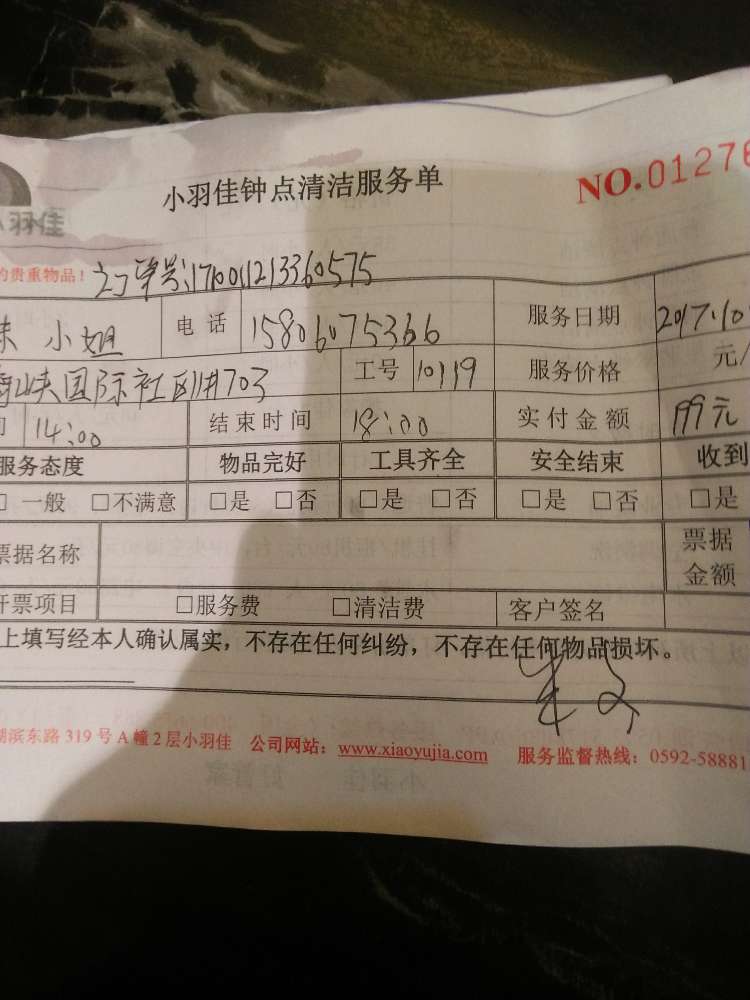 小羽佳钟点清洁服务单
NO.01276
小羽佳
的贵重物品！ 订单号:1710011213360575
小姐 电话 15806075366 服务日期 2017.10
海峡国际社区 703 工号 10119 服务价格 元/
14:00 结束时间 18:00 实付金额 199元
服务态度 物品完好 工具齐全 安全结束 收到
□一般 □不满意 □是 □否 □是 □否 □是 □否 □是
票据名称 票据金额
开票项目 □服务费 □清洁费 客户签名
上填写经本人确认属实，不存在任何纠纷，不存在任何物品损坏。
湖滨东路319号A幢2层小羽佳 公司网站：www.xiaoyujia.com 服务监督热线：0592-58881